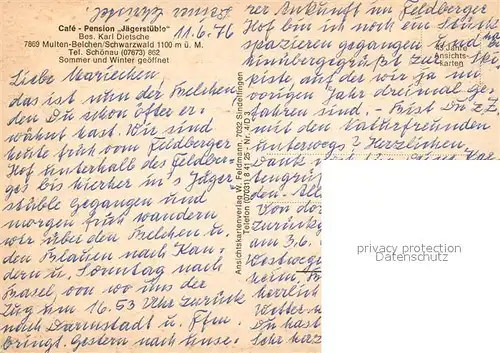 Café - Pension „Jägerstüble"
Bes. Karl Dietsche
7869 Multen-Belchen/Schwarzwald 1100 m ü. M.
Tel. Schönau (07673) 862
Sommer und Winter geöffnet
11.6.76
Liebe Mariechen,
das ist nun der Belchen
den Du schon öfter er-
wähnt hast. Wir sind
heute früh vom Feldberger
Hof unterhalb des Feldber-
ges bis hierher in's Jäger-
stüble gegangen und
morgen früh wandern
wir über den Belchen u.
den Blauen nach Kan-
dern u. Sonntag nach
Basel, von wo uns der
Zug um 16.53 Uhr zurück
nach Darmstadt u. Ffm.
bringt. Gestern nach unse-
rer Ankunft im Feldberger
Hof bin ich noch ein Stück
spazieren gegangen und habe
hinübergegrüßt zur Ski-
piste auf der wir ja im
vorigen Jahr dreimal ge-
fahren sind. - Bist Du z.Z.
mit den Naturfreunden
unterwegs? Herzlichen
Dank
tengrüß
den. All
Von dor
zurück
am 3.6.
Westwege
heim, B
herrlich
Wetter
Du hast
Sehr herzl
45 Jahre
Ansichts-
karten
Ansichtskartenverlag W. Feldmann, 7032 Sindelfingen
Telefon (07031) 8 41 25 - Nr. 4/D 3
privacy protection